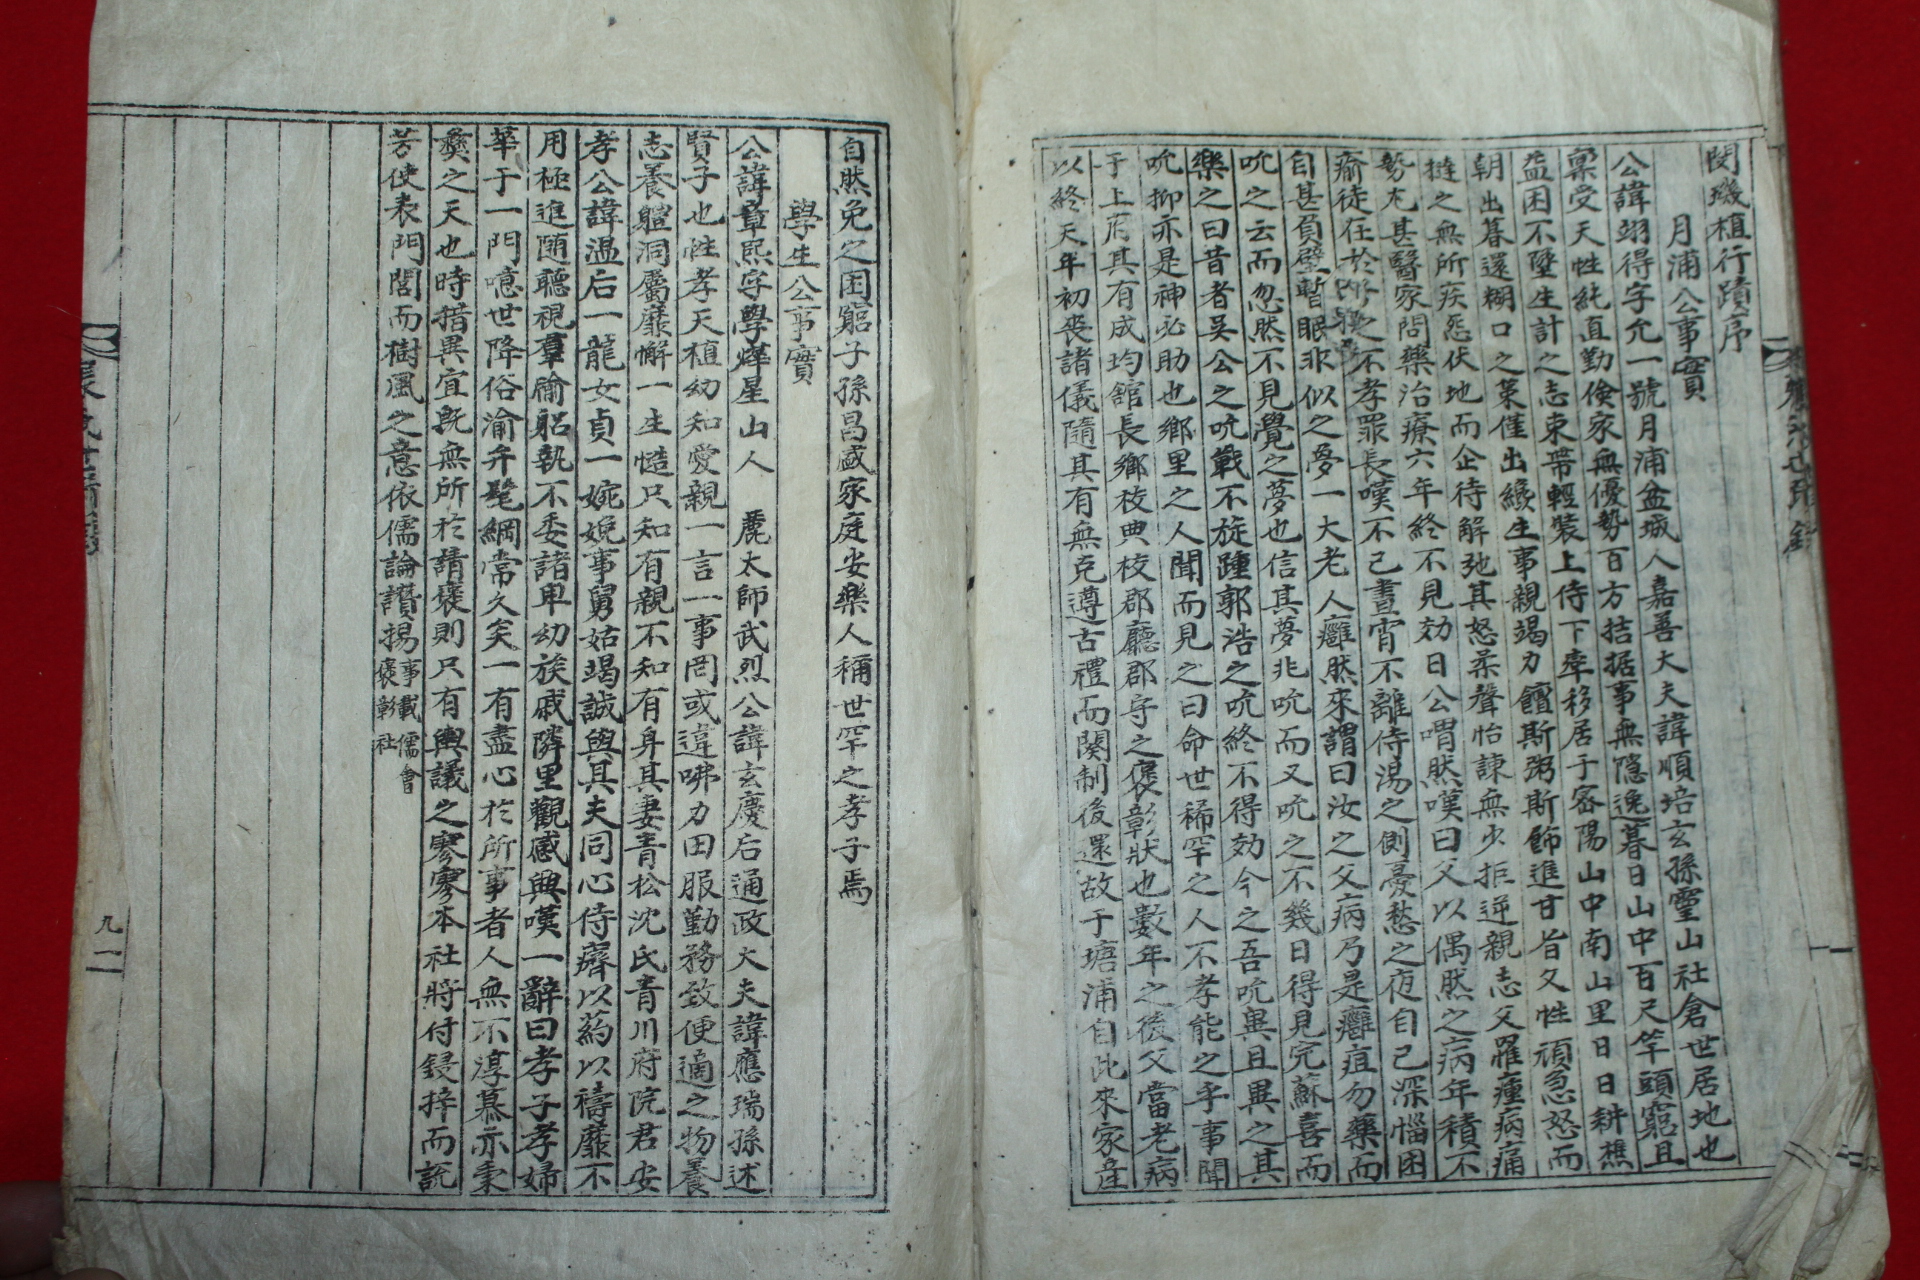 閔璣植行蹟序
月浦公事實
公諱翊得字允一號月浦盆城人嘉善大夫諱順培玄孫靈山社倉世居地也
稟受天性純直勤儉家無優勢百方拮据事無隱逸暮日山中百尺竿頭窮且
益困不墜生計之志束帶輕裝上侍下率移居于密陽山中南山里日日耕樵
朝出暮還糊口之策僅出纔生事親竭力饘斯粥斯飾進甘旨父性頑急怒而
撻之無所疾惡伏地而企待解弛其怒柔聲怡諫無少拒逆親志父罹瘇病痛
勢尤甚醫家問藥治療六年終不見効日公喟然嘆曰父以偶然之病年積不
瘉徒在於之不孝罪長嘆不已晝宵不離侍湯之側憂愁之夜自己深惱困
自甚負壁暫眠非似之夢一大老人癰然來謂曰汝之父病乃是癰疽勿藥而
吮之云而忽然不見覺之夢也信其夢兆吮而又吮之不幾日得見完蘇喜而
樂之曰昔者吳公之吮戰不旋踵郭浩之吮終不得効今之吾吮異且異之其
吮抑亦是神必助也鄉里之人聞而見之曰命世稀罕之人不孝能之乎事聞
于上府其有成均館長鄉校典校郡廳郡守之褒彰狀也數年之後父當老病
以終天年初喪諸儀隨其有無克遵古禮而闋制後還故于塘浦自此來家産
自然免之困窮子孫昌盛家庭安樂人稱世罕之孝子焉
學生公事實
公諱章熙字學燁星山人 麗太師武烈公諱玄慶后通政大夫諱應瑞孫述
賢子也性孝天植幼知愛親一言一事罔或違咈力田服勤務致便適之物養
志養軆洞屬靡懈一生慥只知有親不知有身其妻青松沈氏青川府院君安
孝公諱温后一龍女貞一婉娩事舅姑竭誠與其夫同心侍癠以葯以禱靡不
用極進随聽視羣爺躬執不委諸卑幼族戚隣里觀感興嘆一辭曰孝子孝婦
華于一門噫世降俗渝弁髦綱常久矣一有盡心於所事者人無不淳慕亦秉
彝之天也時措異宜既無所於請褒則只有輿議之寥寥本社將付鋟梓而誂
芳使表門閭而樹風之意依儒論讚揚事載儒會褒彰社
九一